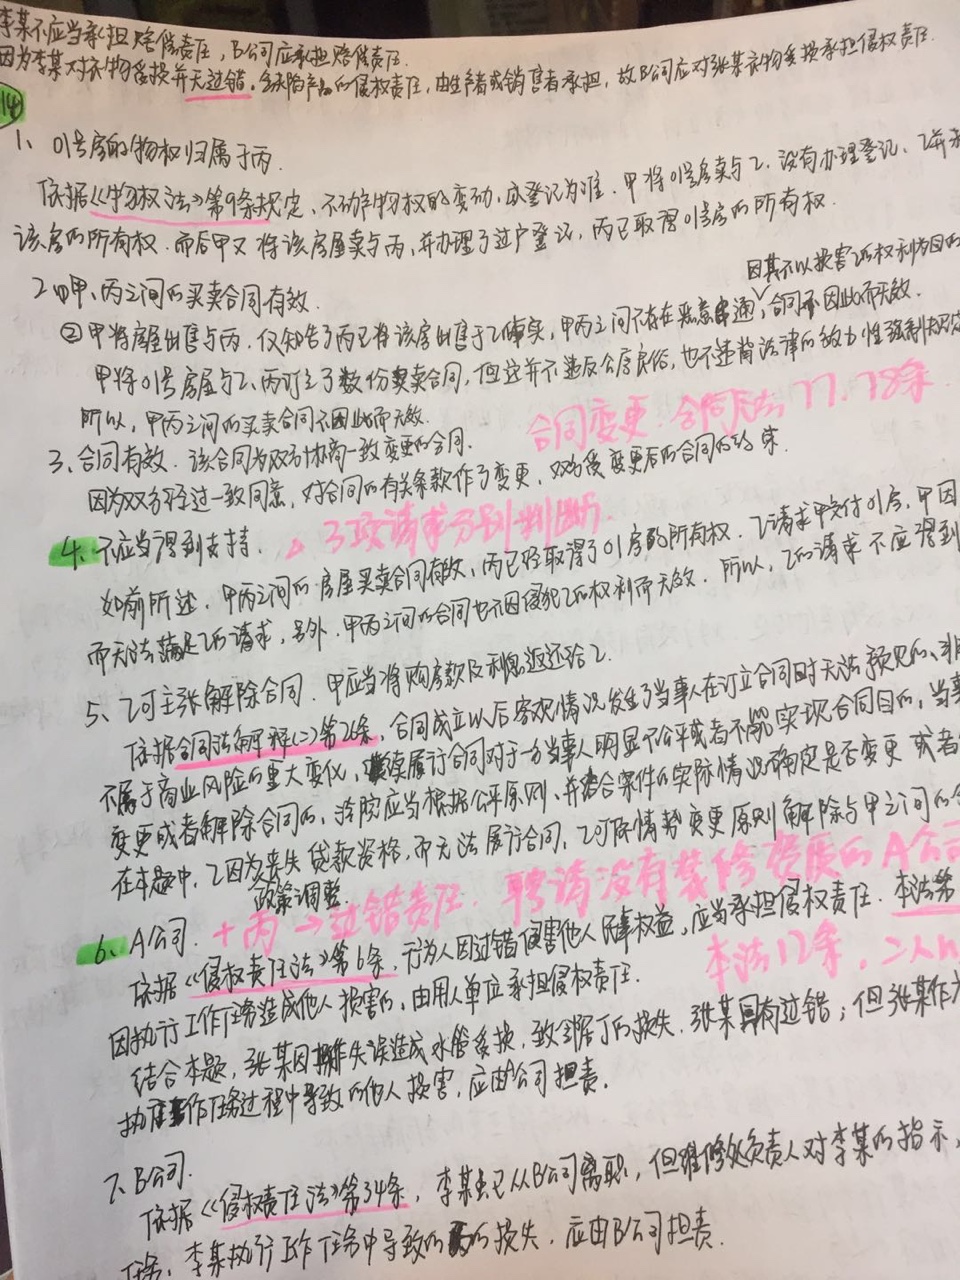 李某不应当承担赔偿责任，B公司应承担赔偿责任.
因为李某对衣物受损并无过错。缺陷产品的侵权责任，由生产者或销售者承担，故B公司应对张某衣物受损承担侵权责任.
14
1、01号房的物权归属于丙.
依据《物权法》第9条规定、不动产物权的变动，以登记为准. 甲将01号房卖与乙. 没有办理登记、乙并未
该房的所有权. 而后甲又将该房屋卖与丙，并办理了过户登记，丙已取得01号房的所有权.
因其不以损害乙的权利为目的
2、①甲、丙之间的买卖合同有效.
②甲将房屋出售与丙. 仅知告了丙已将该房出售于乙事实，甲丙之间不存在恶意串通，合同不因此而无效.
甲将01号房屋与乙、丙订立了数份买卖合同，但这并不违反公序良俗，也不违背法律的效力性强制规定
所以，甲丙之间的买卖合同不因此而无效.
合同变更. 合同法 77、78条
3、合同有效. 该合同为双方协商一致变更的合同.
因为双方经过一致同意，对合同的有关条款作了变更，双方受变更后的合同的约束.
4、不应当得到支持. △ 3项请求分别判断.
如前所述. 甲丙之间的房屋买卖合同有效，丙已经取得了01房的所有权. 乙请求甲交付01房，甲因
而无法满足乙的请求，另外. 甲丙之间的合同也不因侵犯乙的权利而无效. 所以，乙的请求不应得到
5、乙可主张解除合同. 甲应当将购房款及利息返还给乙.
依据合同法解释(二)第26条，合同成立以后客观情况发生了当事人在订立合同时无法预见的、非
不属于商业风险的重大变化，继续履行合同对于一方当事人明显不公平或者不能实现合同目的，当事
变更或者解除合同的，法院应当根据公平原则、并结合案件的实际情况确定是否变更或者
在本题中，乙因为丧失贷款资格，而无法履行合同，乙可依情势变更原则解除与甲之间的合
政策调整
6、A公司. + 丙 → 过错责任. 聘请没有装修资质的A公司
依据《侵权责任法》第6条，行为人因过错侵害他人民事权益，应当承担侵权责任. 本法第
本法12条，二人
因执行工作任务造成他人损害的，由用人单位承担侵权责任.
结合本题，张某因操作失误造成水管受损，致邻居丁的损失. 张某具有过错；但张某作为
执行工作任务过程中导致的他人损害，应由A公司担责.
7、B公司.
依据《侵权责任法》第34条，李某虽已从B公司离职，但维修处负责人对李某的指示，
任务，李某执行工作任务中导致的损失，应由B公司担责.